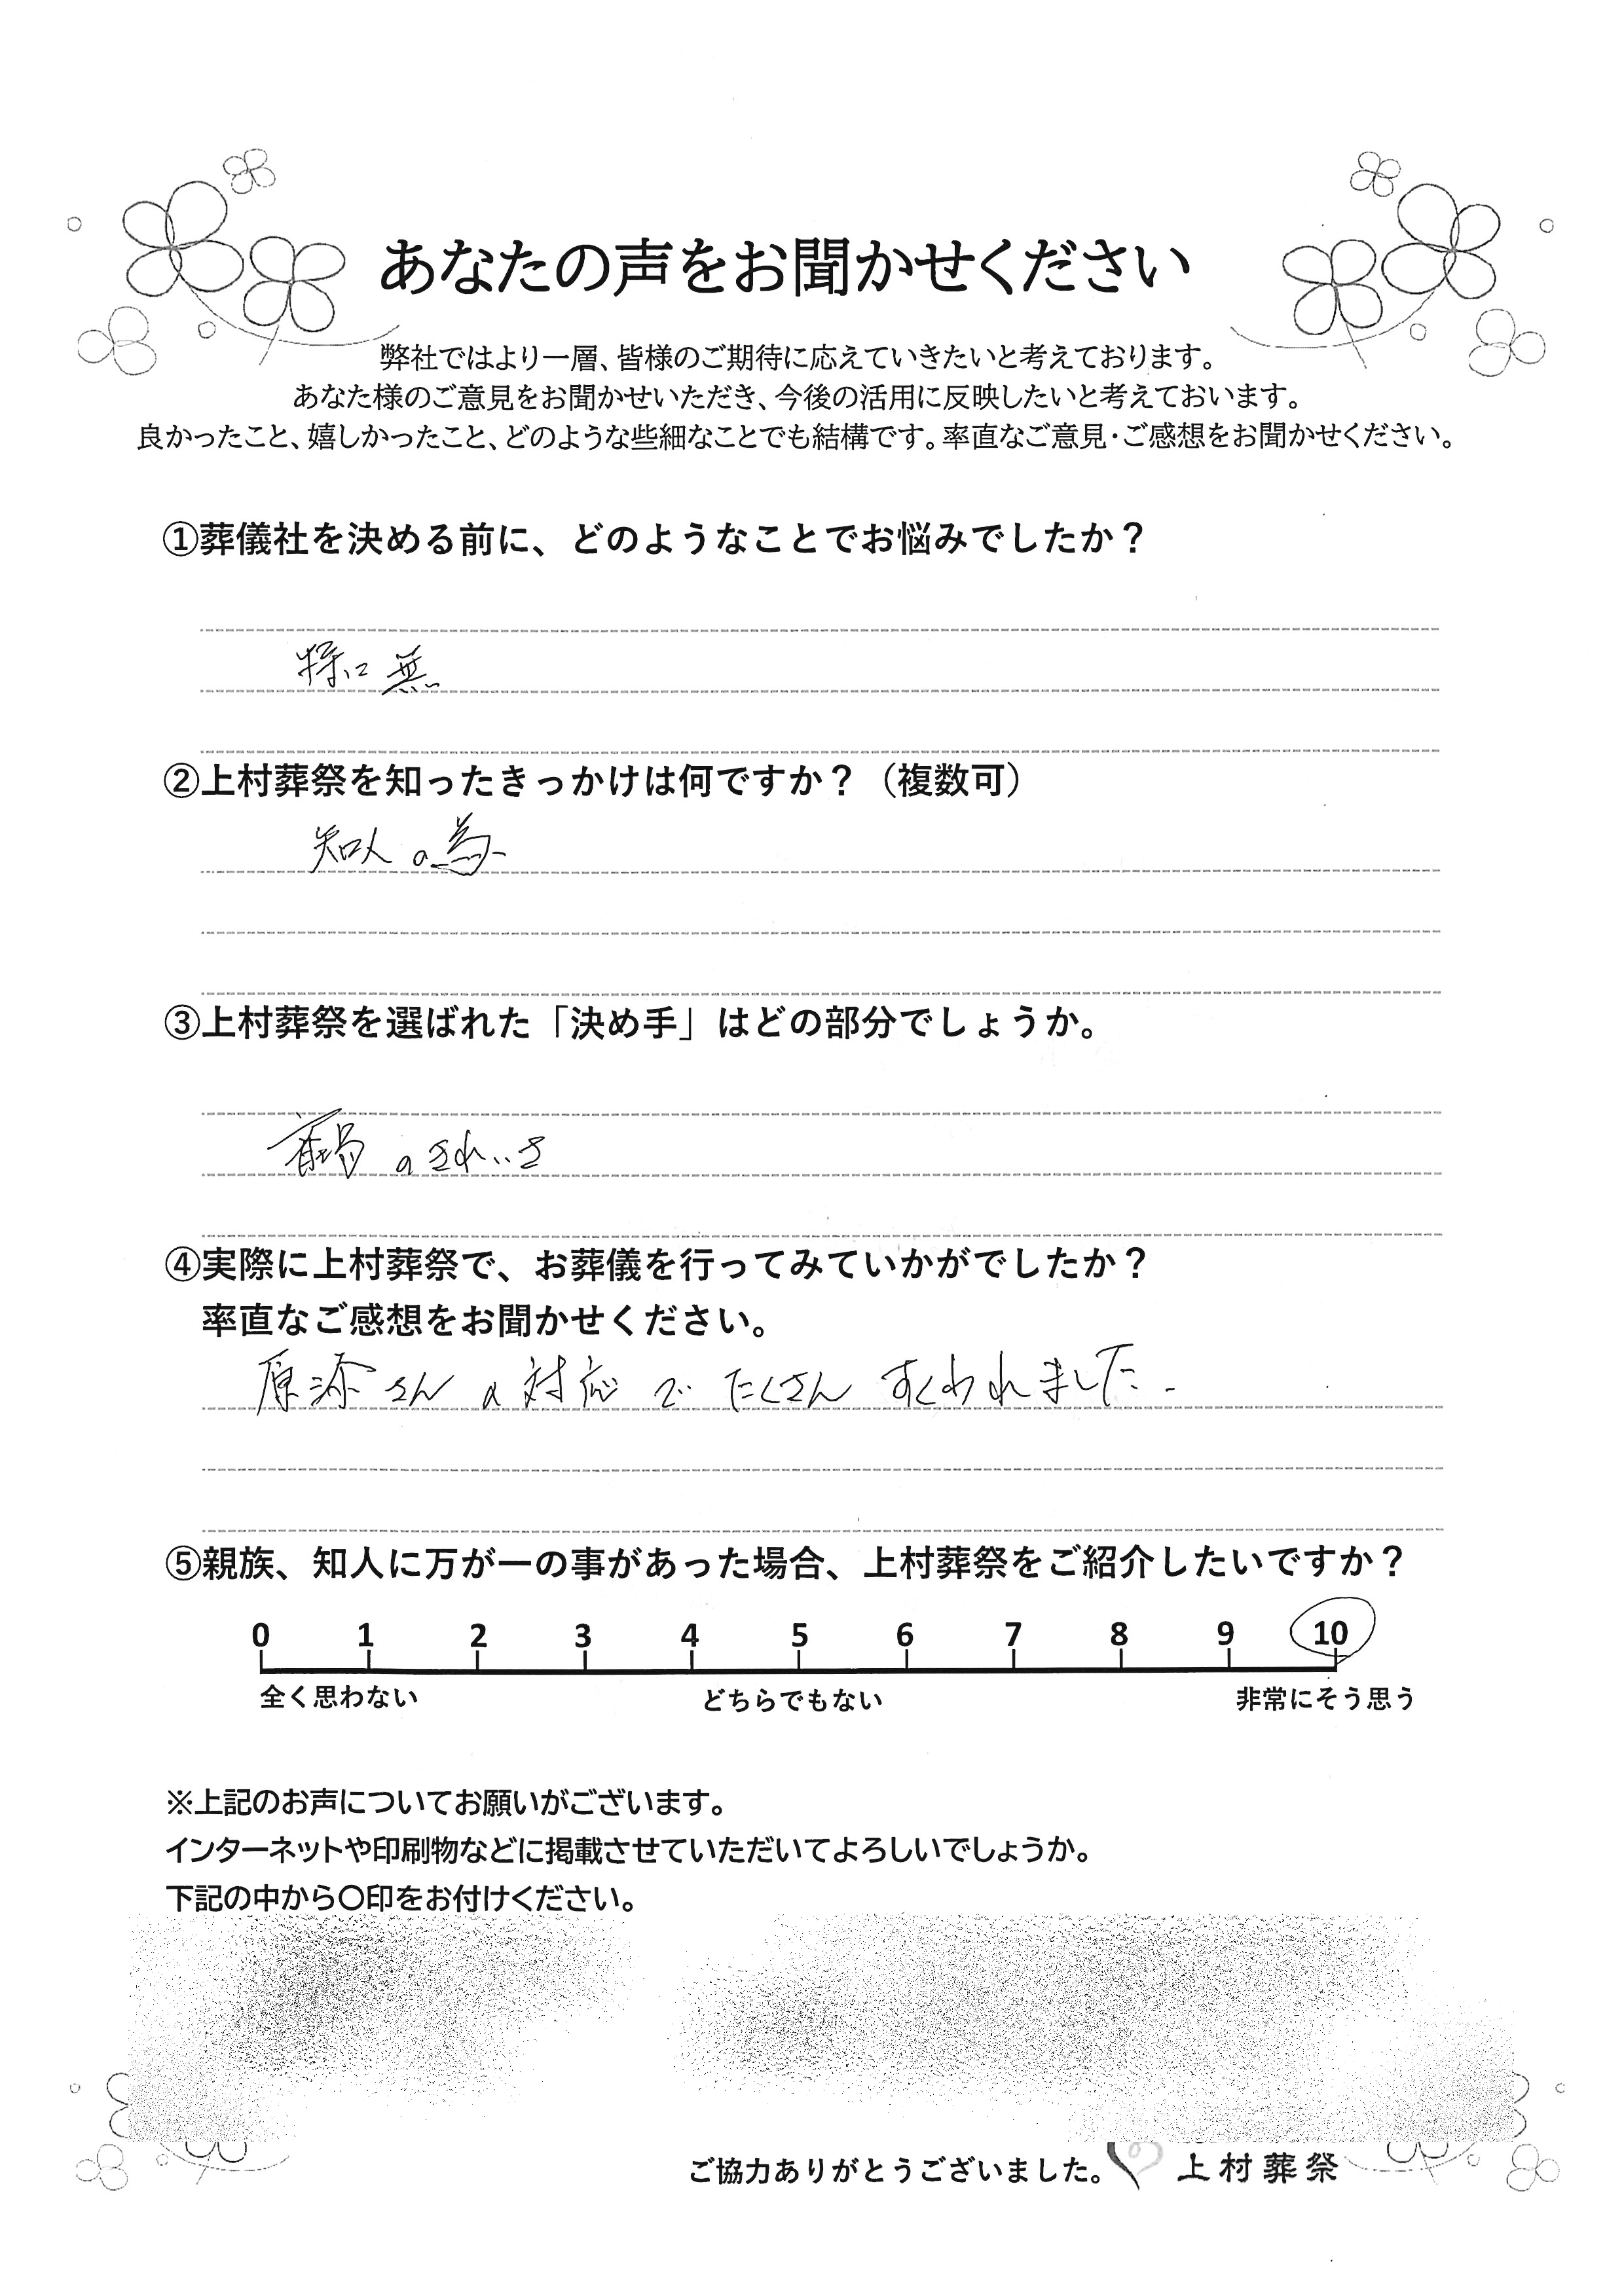 あなたの声をお聞かせください
弊社ではより一層、皆様のご期待に応えていきたいと考えております。
あなた様のご意見をお聞かせいただき、今後の活用に反映したいと考えておいます。
良かったこと、嬉しかったこと、どのような些細なことでも結構です。率直なご意見・ご感想をお聞かせください。
①葬儀社を決める前に、どのようなことでお悩みでしたか？
特に無
②上村葬祭を知ったきっかけは何ですか？（複数可）
知人の為
③上村葬祭を選ばれた「決め手」はどの部分でしょうか。
のきれいさ
④実際に上村葬祭で、お葬儀を行ってみていかがでしたか？
率直なご感想をお聞かせください。
原添さんの対応でたくさんすくわれました.
⑤親族、知人に万が一の事があった場合、上村葬祭をご紹介したいですか？
0 1 2 3 4 5 6 7 8 9 10
全く思わない どちらでもない 非常にそう思う
※上記のお声についてお願いがございます。
インターネットや印刷物などに掲載させていただいてよろしいでしょうか。
下記の中から〇印をお付けください。
ご協力ありがとうございました。 上村葬祭